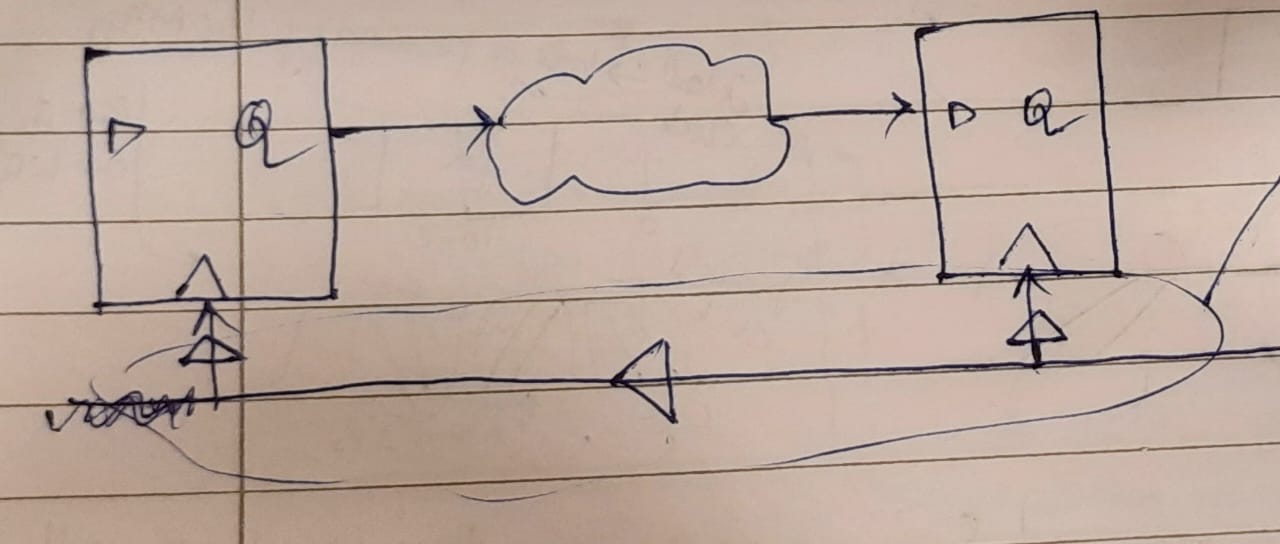 D Q D Q